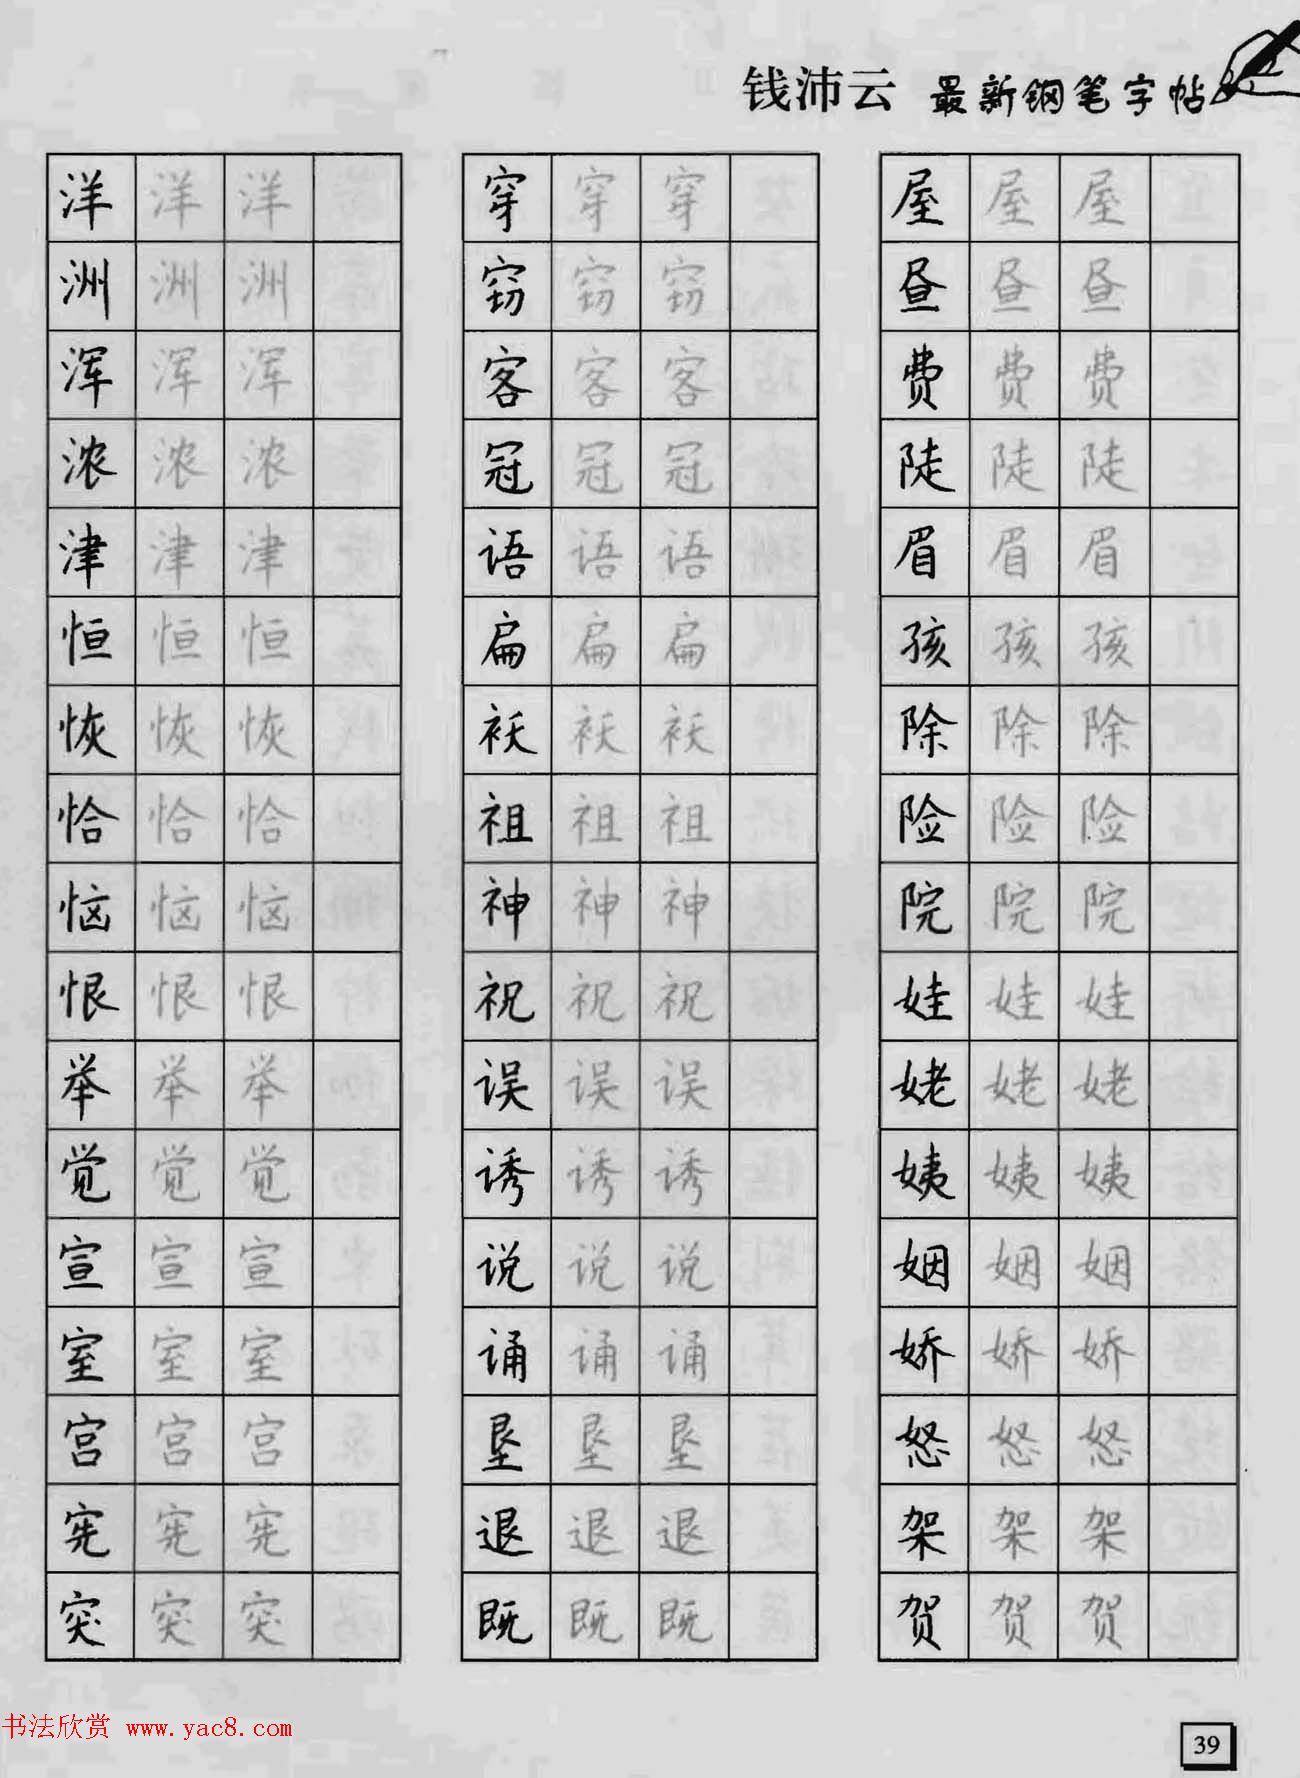 钱沛云 最新钢笔字帖
洋 洋 洋
洲 洲 洲
浑 浑 浑
浓 浓 浓
津 津 津
恒 恒 恒
恢 恢 恢
恰 恰 恰
恼 恼 恼
恨 恨 恨
举 举 举
觉 觉 觉
宣 宣 宣
室 室 室
宫 宫 宫
宪 宪 宪
突 突 突
穿 穿 穿
窃 窃 窃
客 客 客
冠 冠 冠
语 语 语
扁 扁 扁
袄 袄 袄
祖 祖 祖
神 神 神
祝 祝 祝
误 误 误
诱 诱 诱
说 说 说
诵 诵 诵
垦 垦 垦
退 退 退
既 既 既
屋 屋 屋
昼 昼 昼
费 费 费
陡 陡 陡
眉 眉 眉
孩 孩 孩
除 除 除
险 险 险
院 院 院
娃 娃 娃
姥 姥 姥
姨 姨 姨
姻 姻 姻
娇 娇 娇
怒 怒 怒
架 架 架
贺 贺 贺
书法欣赏 www.yac8.com
39